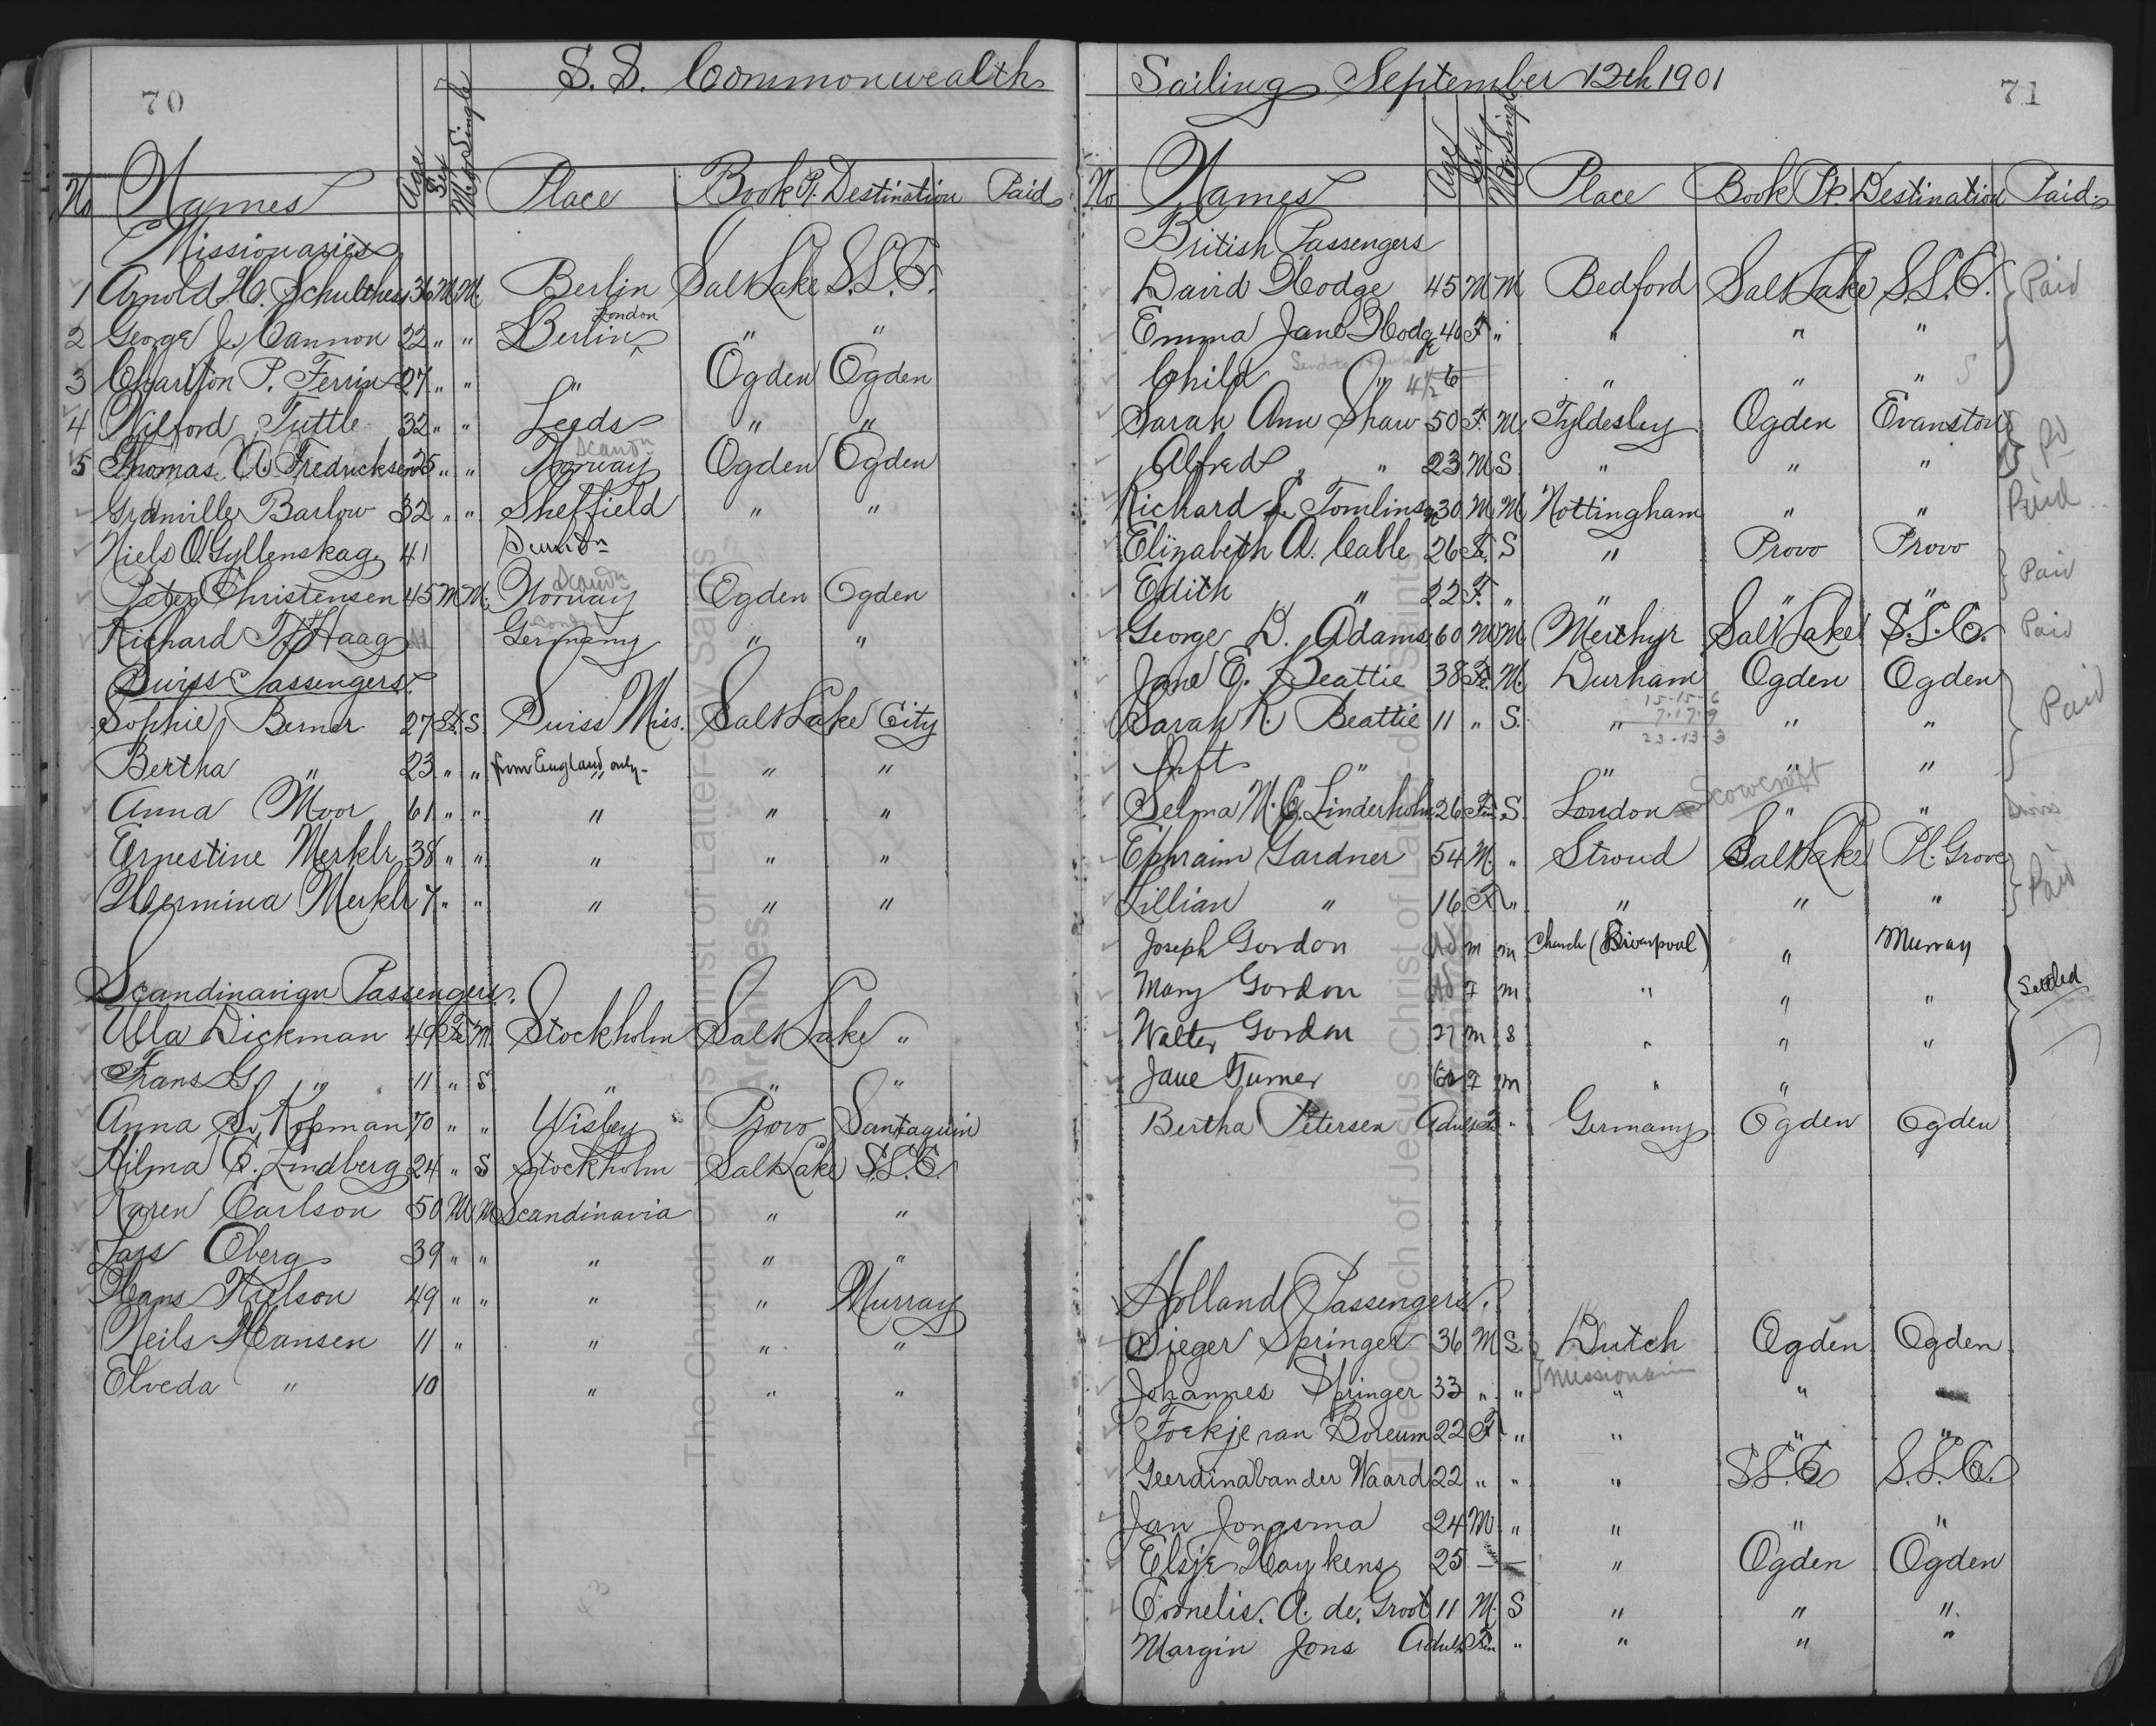 70
S. S. Commonwealth
No Names Age Sex M. or Single Place Book P. Destination Paid
Missionaries
1 Arnold H. Schulthess 36 M M Berlin Salt Lake S.L.C.
London
2 George J. Cannon 22 " " Berlin " "
3 Charlton P. Ferrin 27 " " " Ogden Ogden
4 Wilford Tuttle 32 " " Leeds " "
Scandn
5 Thomas A. Fredricksen 25 " " Norway Ogden Ogden
Granville Barlow 32 " " Sheffield " "
Niels O Gyllenskag 41 Scandn
Scandn
Peter Christensen 45 M M. Norway Ogden Ogden
Richard T. Haag Germany " "
Swiss Passengers.
Sophie Berner 27 F. S Swiss Miss. Salt Lake City
Bertha " 23 " " from England only " "
Anna Moor 61 " " " " "
Ernestine Merklr 38 " " " " "
Hermina Merklr 7 " " " " "
Scandinavian Passengers.
Ulla Dickman 49 Fe M Stockholm Salt Lake "
Frans G. " 11 " S " " "
Anna S. Kopman 70 " " Wisby Provo Santaquin
Hilma C. Lindberg 24 " S Stockholm Salt Lake S.L.C.
Karen Carlson 50 M M Scandinavia " "
Lars Oberg 39 " " " " "
Hans Nielson 49 " " " " Murray
Neils Hansen 11 " " " "
Elveda " 10 " " "
71
Sailing September 12th 1901
No Names Age Sex M. or Single Place Book Pt. Destination Paid
British Passengers
David Hodge 45 M M Bedford Salt Lake S.L.C. Paid
Emma Jane Hodge 40 F " " " "
Child " 4 1/2 6 " " "
Sarah Ann Shaw 50 F. M. Tyldesley Ogden Evanston Pd
Alfred " " 23 M S " " "
Richard S. Tomlinson 30 M M Nottingham " " Paid
Elizabeth A. Cable 26 Fe. S " Provo Provo
Edith " 22 F. " " " " Paid
George D. Adams 60 M M Merthyr Salt Lake S.L.C. Paid
Jane E. Beattie 38 Fe. M. Durham Ogden Ogden Paid
15-15-6
Sarah R. Beattie 11 " S. " 7.17.9 " "
23-13-3
Inft " " " "
Selma M. C. Linderholm 26 Fm. S. London Scowcroft " "
Ephraim Gardner 54 M. " Stroud Salt Lake Pl. Grove Paid
Lillian " 16 F " " " "
Joseph Gordon Ad m m Church (Liverpool) " Murray
Mary Gordon Ad F m " " " Settled
Walter Gordon 27 m s " " "
Jane Turner 60 F m " "
Bertha Petersen Adult F " Germany Ogden Ogden
Holland Passengers.
Sieger Springer 36 M S. Dutch Ogden Ogden
Johannes Springer 33 " " missionari " "
Foekje van Boreum 22 F " " " "
Geerdina van der Waard 22 " " " S.L.C S.L.C.
Jan Jongsma 24 M " " " "
Elsje Haykens 25 — — " Ogden Ogden
Cornelis. A. de. Groot 11 M. S " " "
Margin Jons Adult Fem " " " "
The Church of Jesus Christ of Latter-day Saints
Archives
The Church of Jesus Christ of Latter-day Saints
Archives